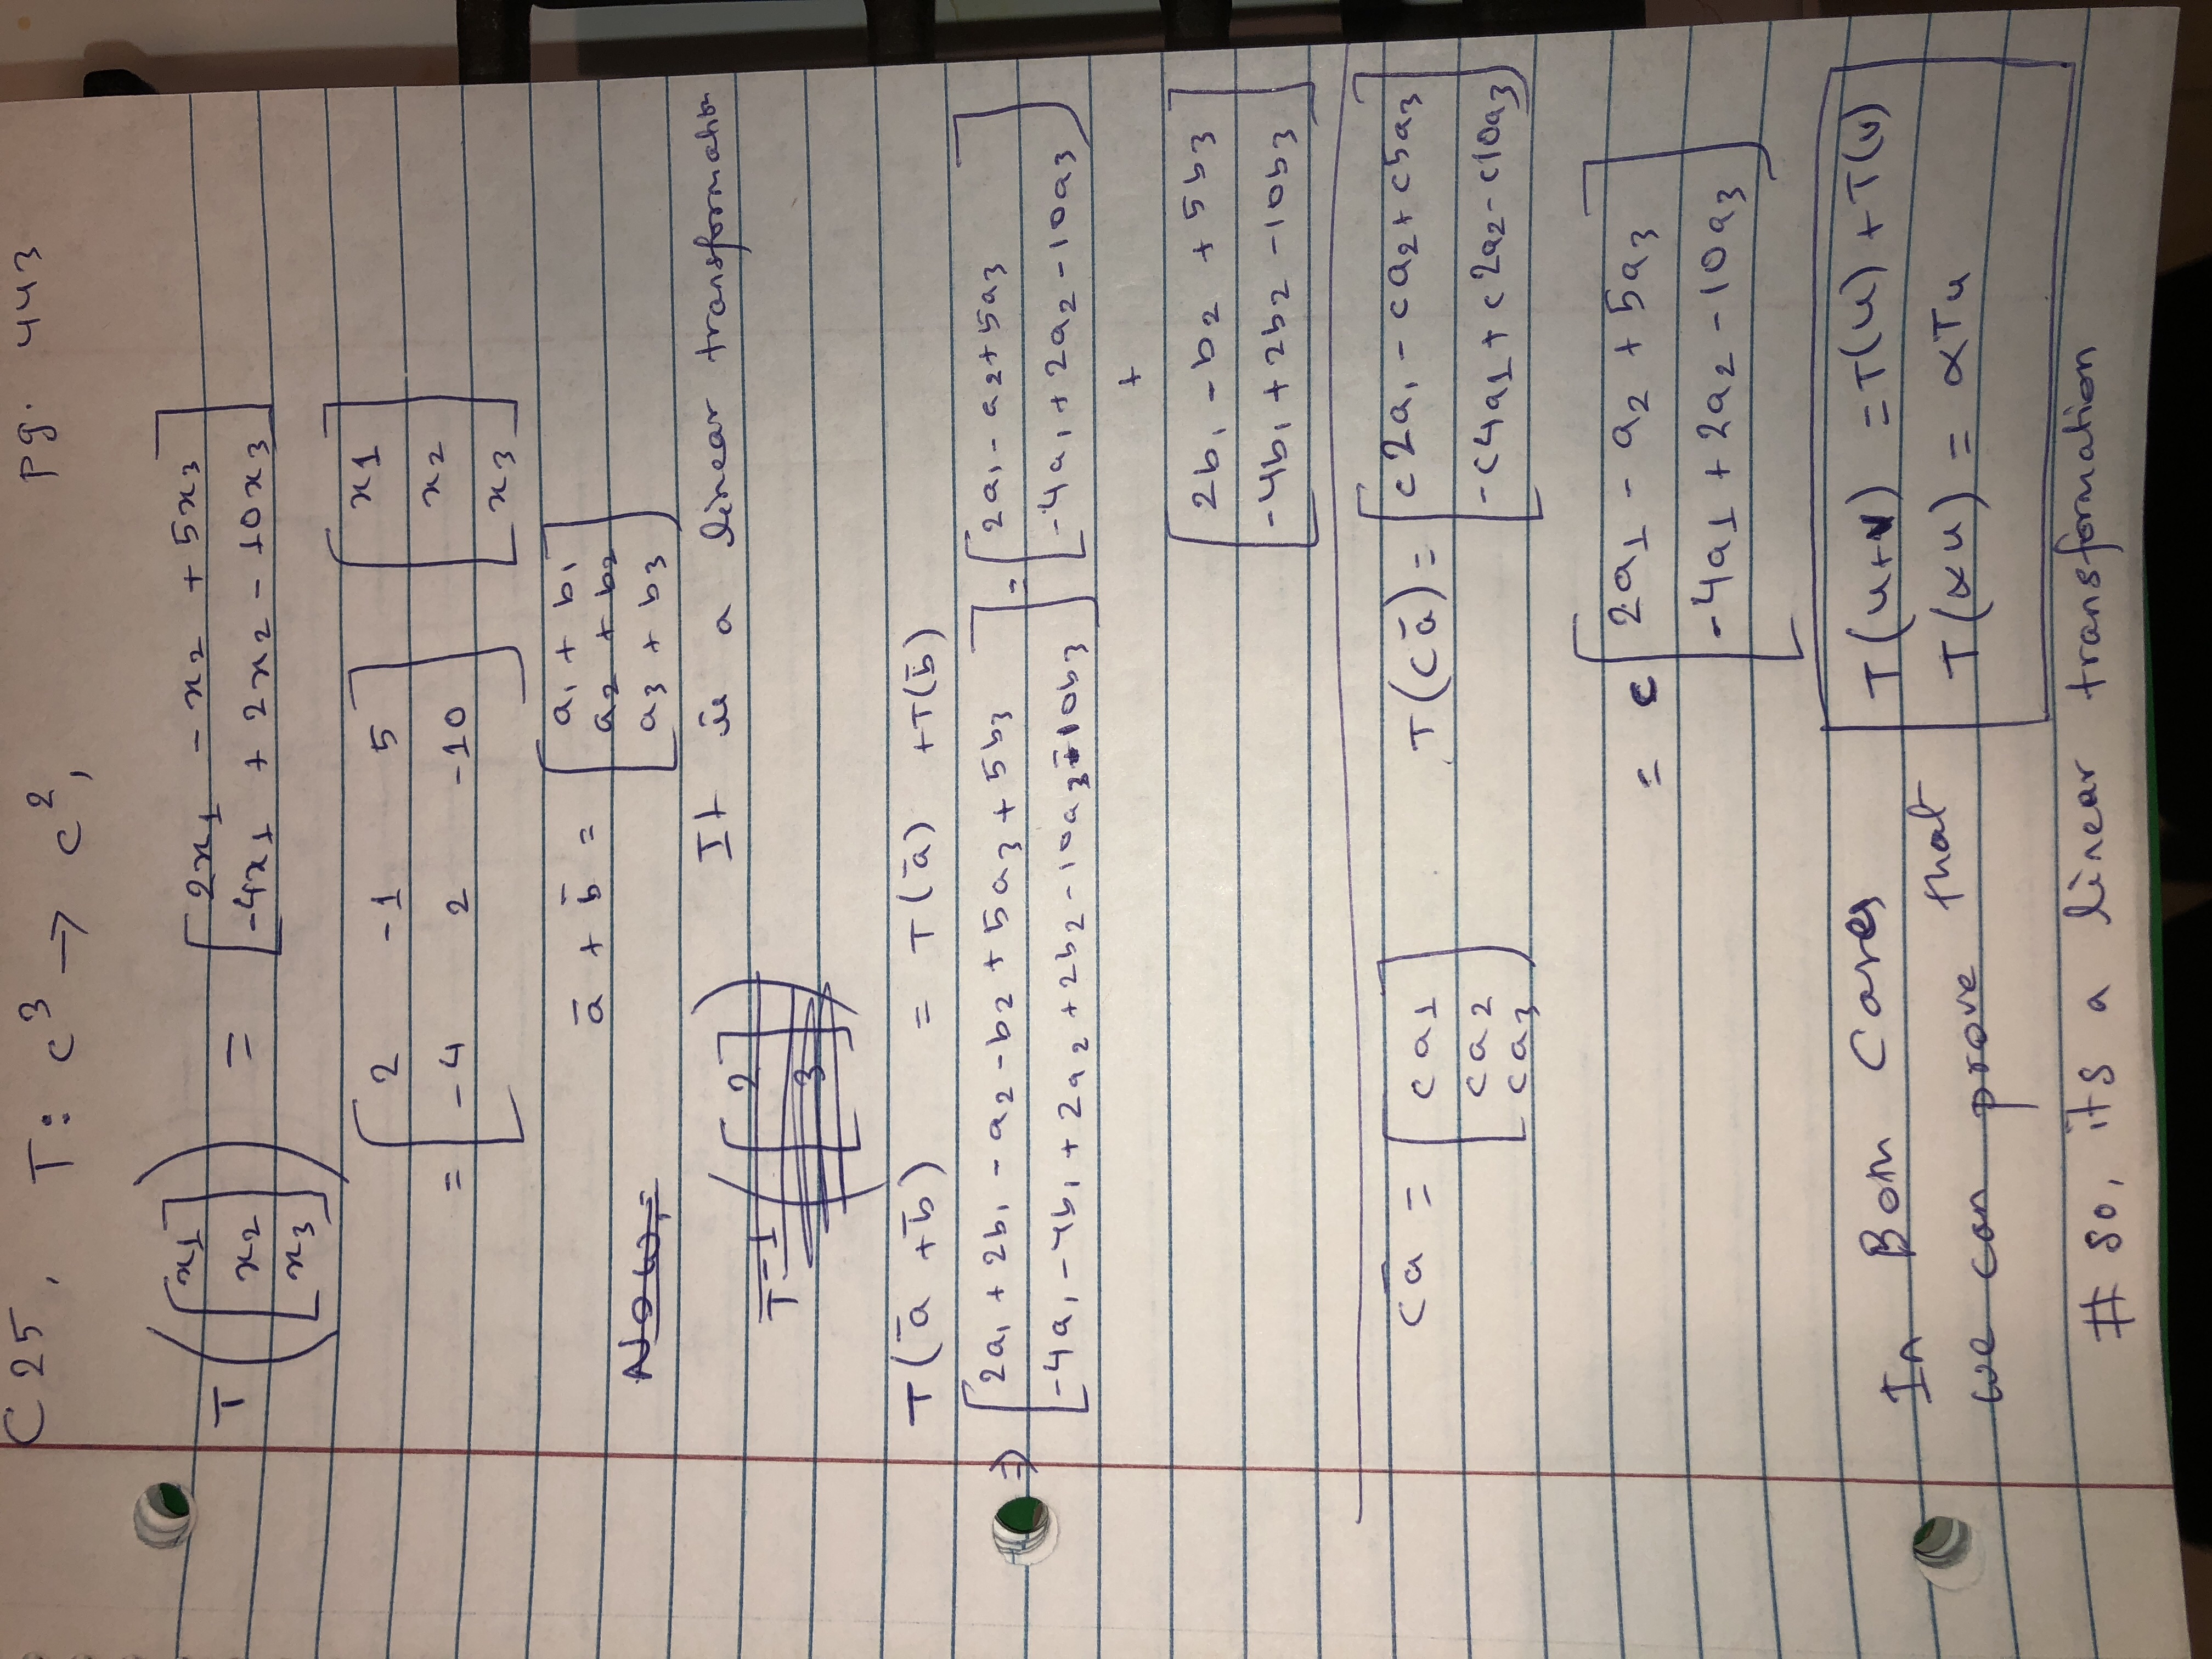 C25, T: c³ → c², pg. 443
T([x1 x2 x3]) = [2x1 - x2 + 5x3
-4x1 + 2x2 - 10x3]
= [2 -1 5
-4 2 -10] [x1
x2
x3]
ā + b̄ = [a1 + b1
a2 + b2
a3 + b3]
Now,
It is a linear transformation
T⁻¹([2
3])
T(ā + b̄) = T(ā) + T(b̄)
⇒ [2a1 + 2b1 - a2 - b2 + 5a3 + 5b3 = [2a1 - a2 + 5a3
-4a1 - 4b1 + 2a2 + 2b2 - 10a3 - 10b3] -4a1 + 2a2 - 10a3]
+
[2b1 - b2 + 5b3
-4b1 + 2b2 - 10b3]
cā = [ca1
ca2
ca3]
T(cā) = [c2a1 - ca2 + c5a3
-c4a1 + c2a2 - c10a3]
= c [2a1 - a2 + 5a3
-4a1 + 2a2 - 10a3]
In Both Cases
we can prove that
T(u+v) = T(u) + T(v)
T(αu) = αTu
# so, its a linear transformation